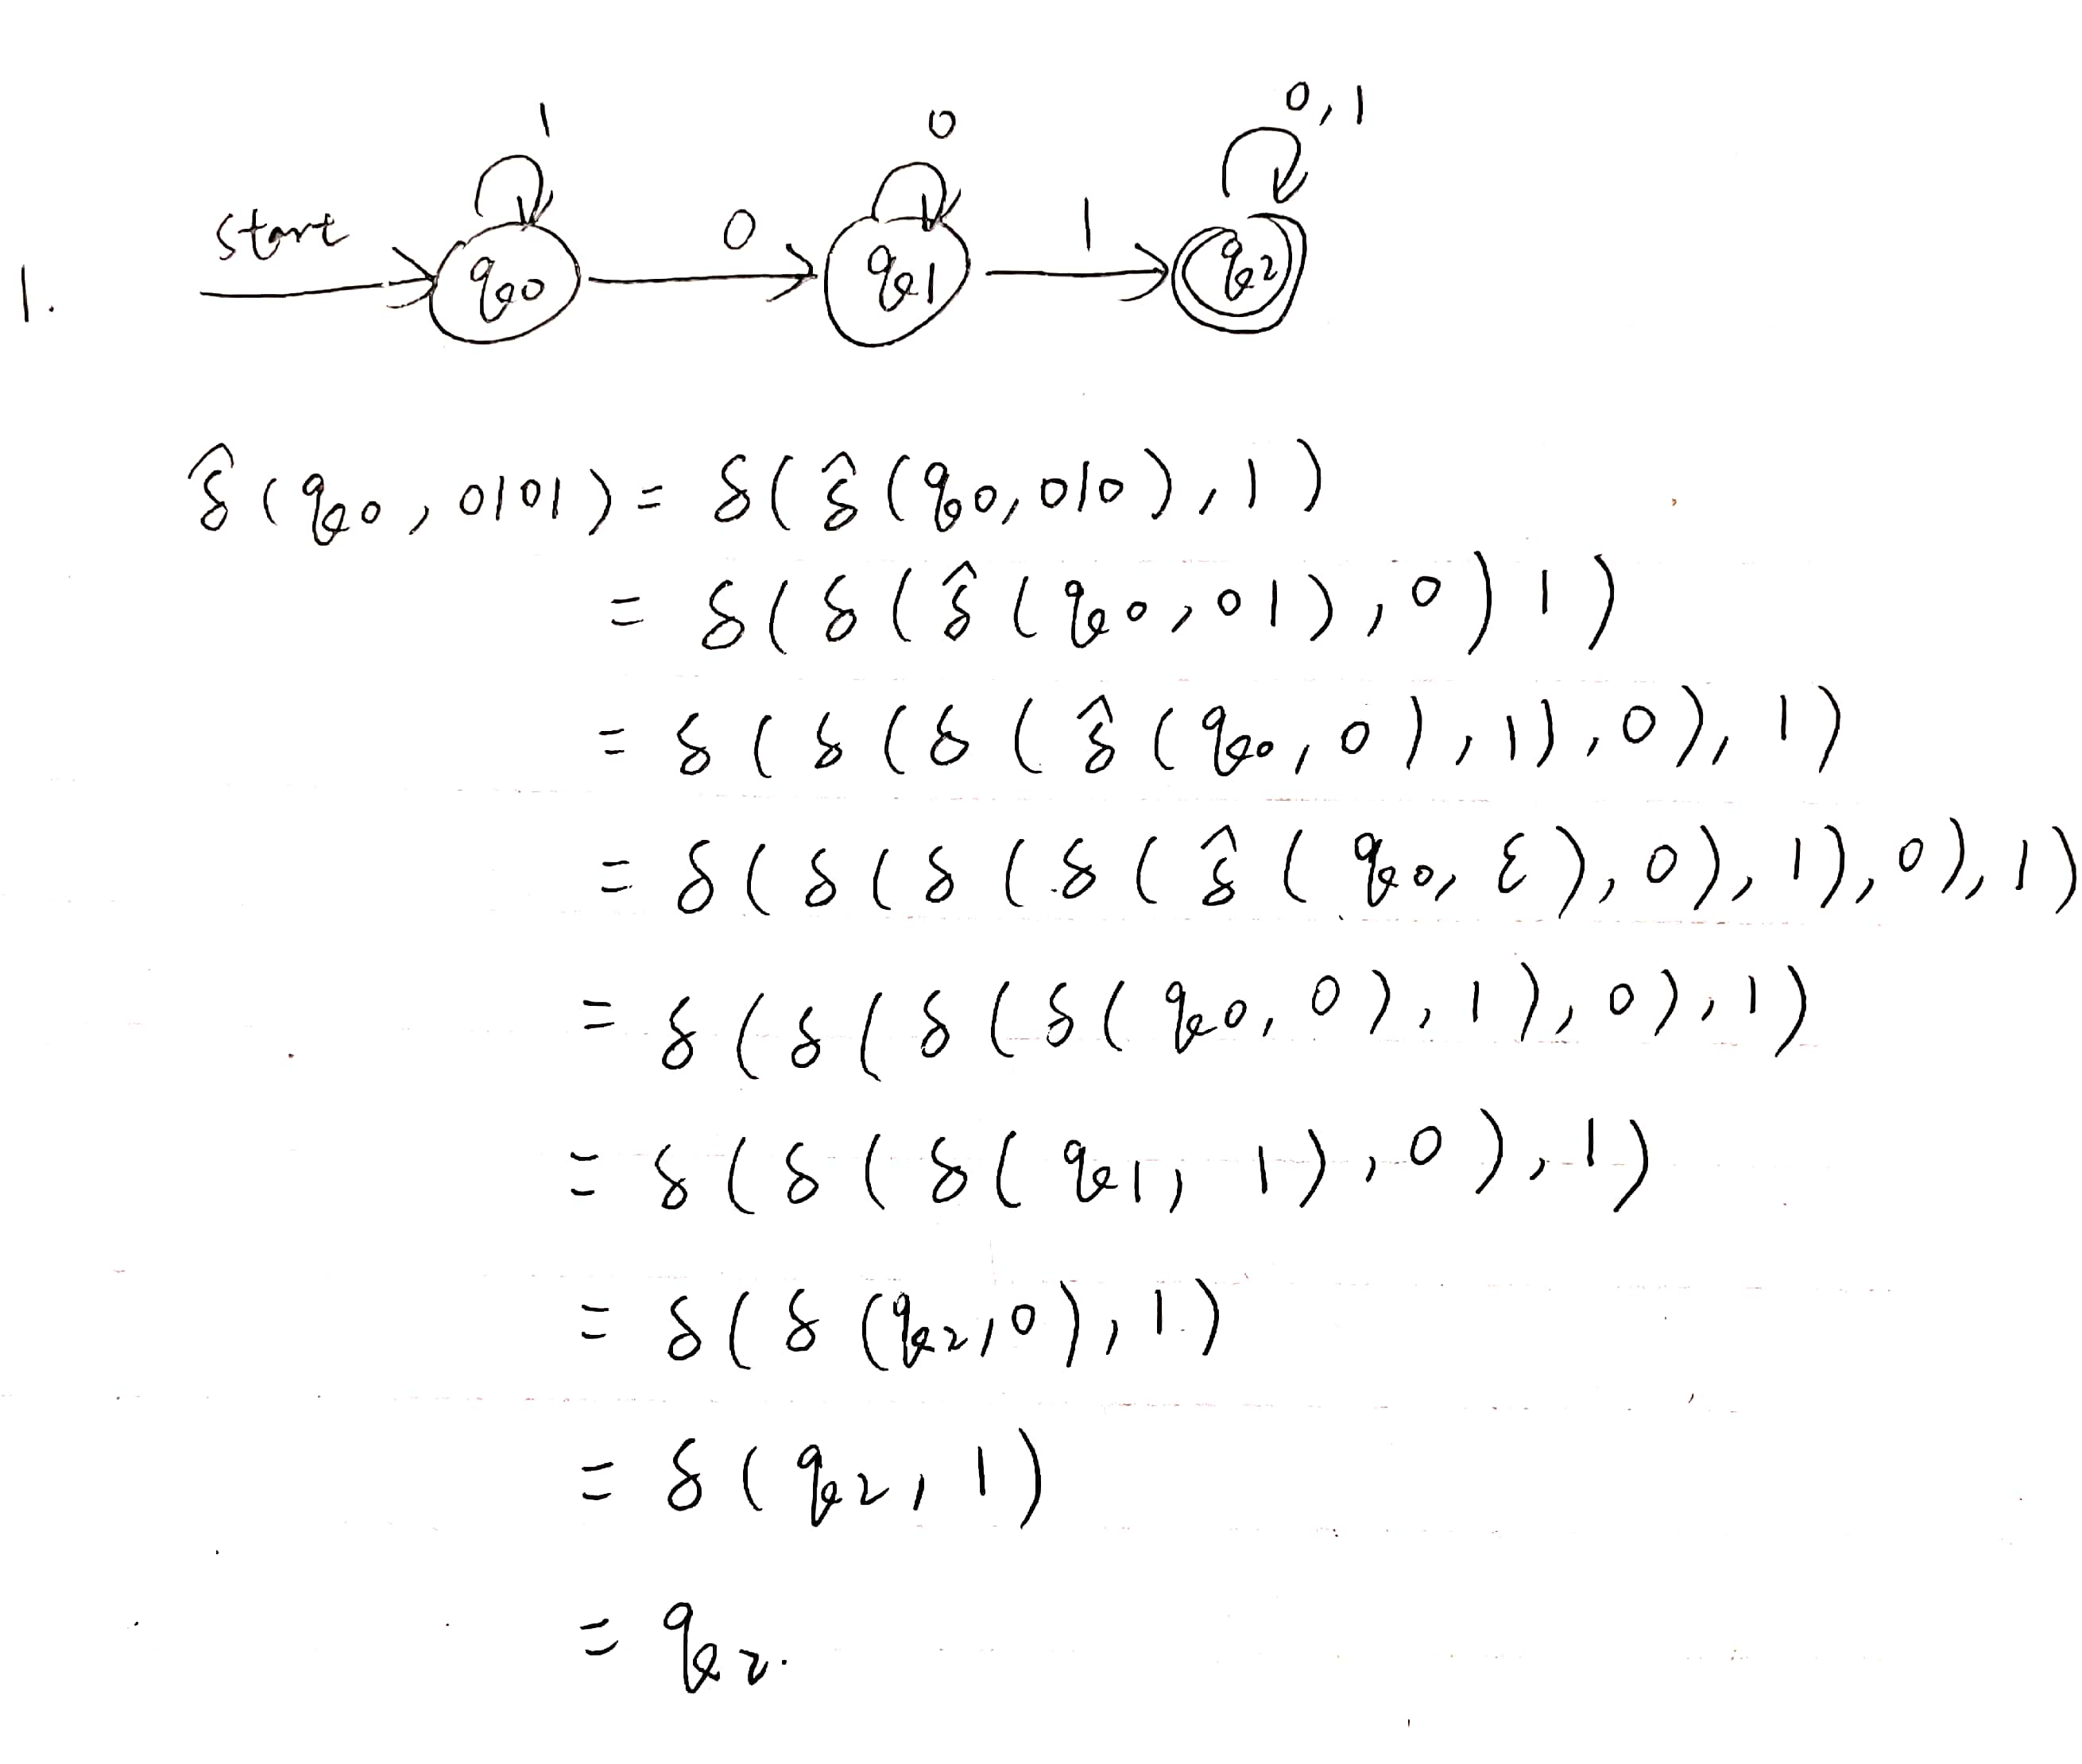 1 0 0,1
start 0 1
1. q0 q1 q2
δ̂(q0,0101) = δ(δ̂(q0,010),1)
= δ(δ(δ̂(q0,01),0)1)
= δ(δ(δ(δ̂(q0,0),1),0),1)
= δ(δ(δ(δ(δ̂(q0,ε),0),1),0),1)
= δ(δ(δ(δ(q0,0),1),0),1)
= δ(δ(δ(q1,1),0),1)
= δ(δ(q2,0),1)
= δ(q2,1)
= q2.